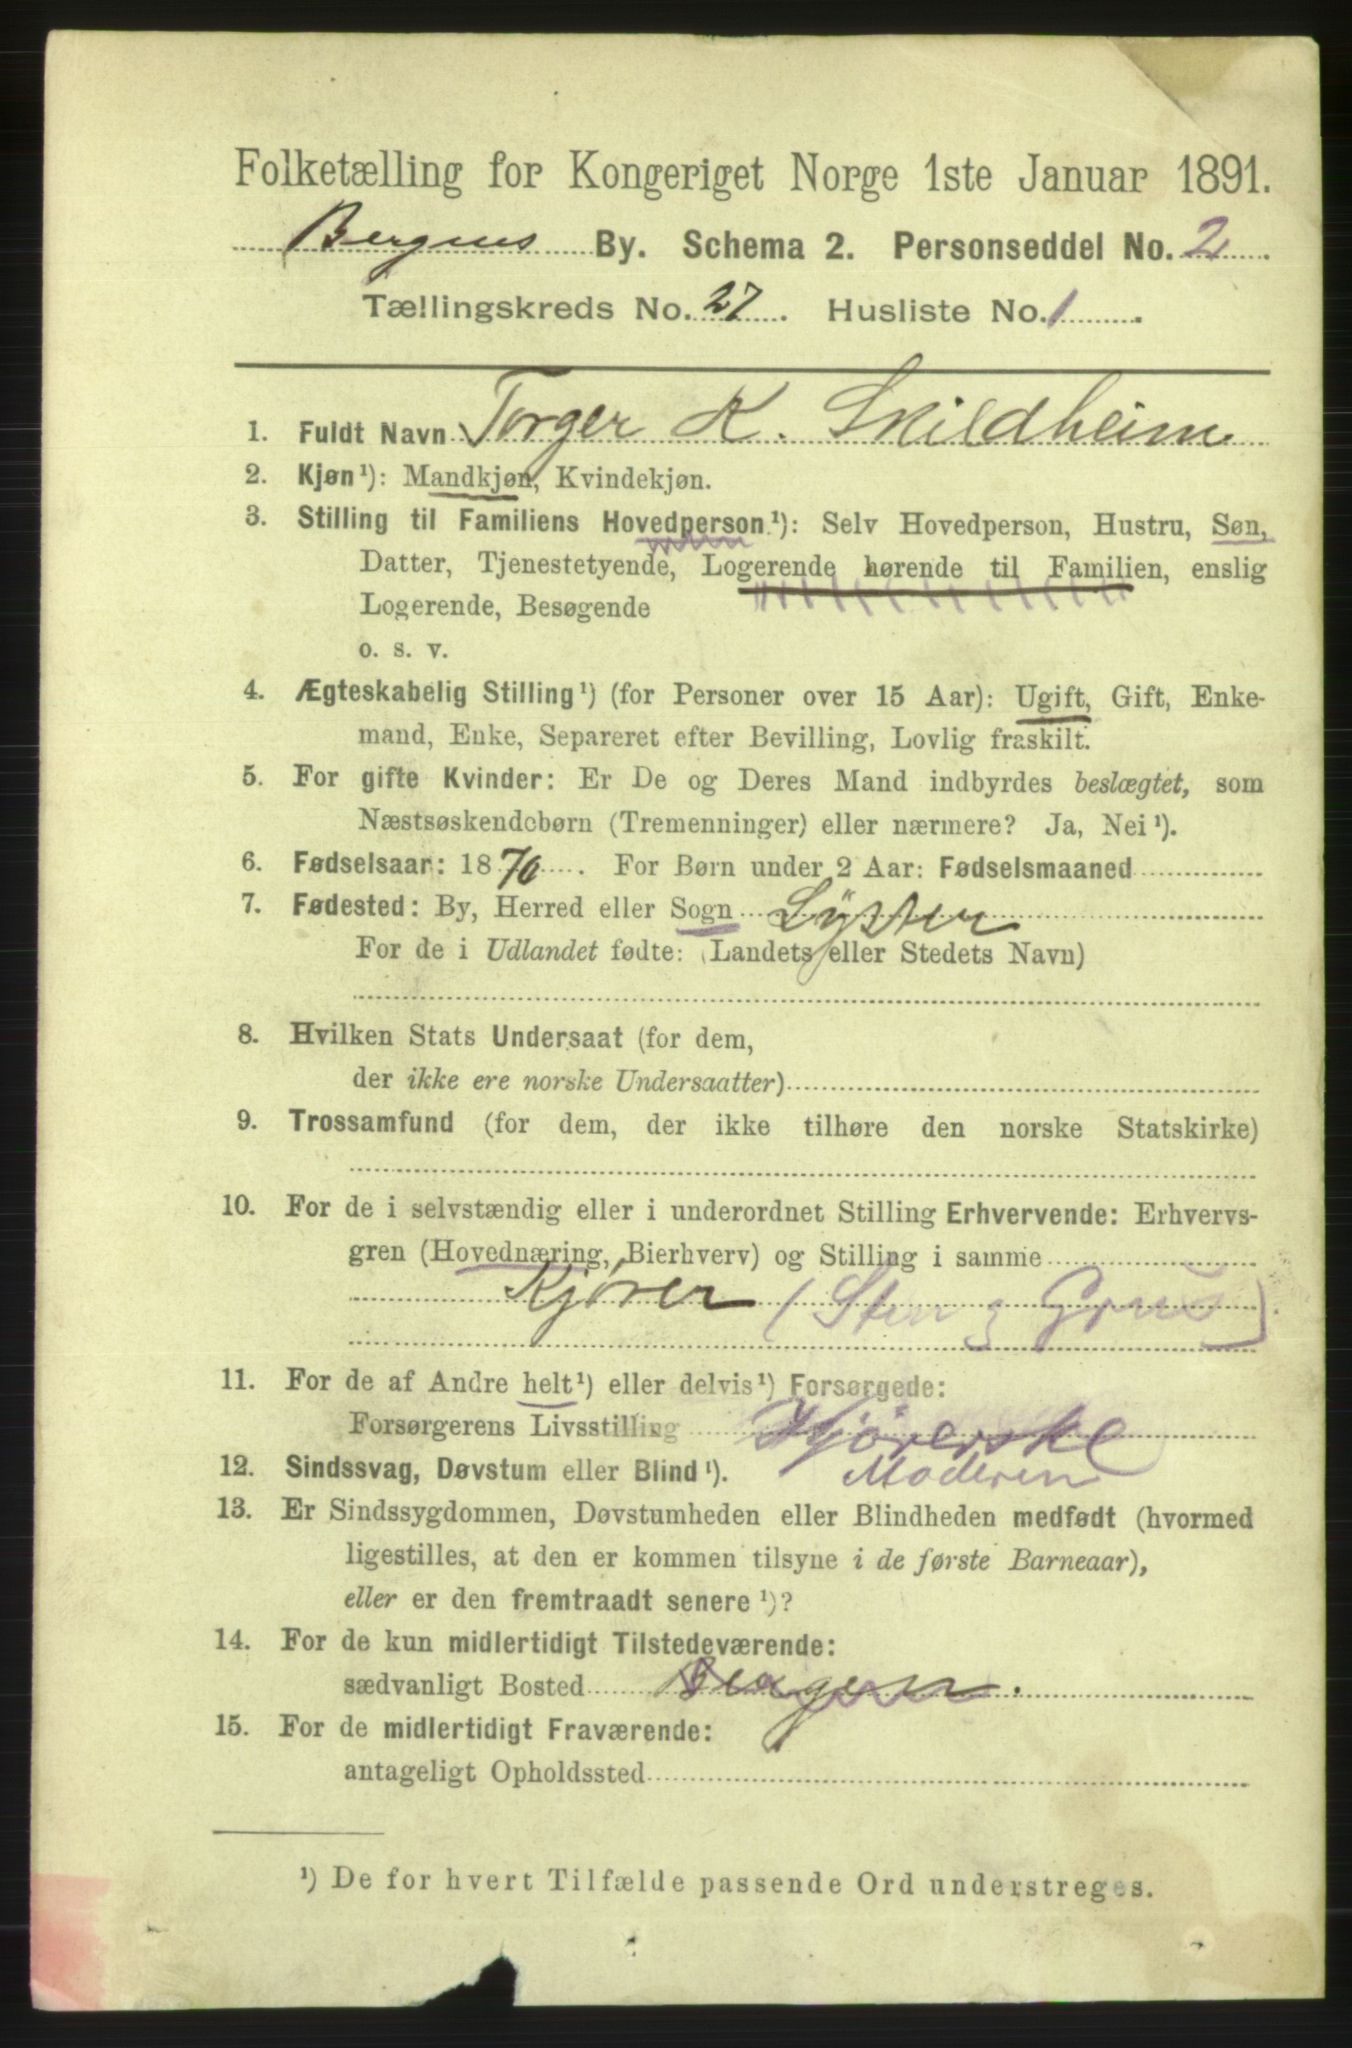 Folketælling for Kongeriget Norge 1ste Januar 1891.
Bergens By. Schema 2. Personseddel No. 2
Tællingskreds No. 27. Husliste No. 1.
1. Fuldt Navn Torger K. Skildheim
2. Kjøn¹): Mandkjøn, Kvindekjøn.
3. Stilling til Familiens Hovedperson¹): Selv Hovedperson, Hustru, Søn,
Datter, Tjenestetyende, Logerende hørende til Familien, enslig
Logerende, Besøgende
o. s. v.
4. Ægteskabelig Stilling¹) (for Personer over 15 Aar): Ugift, Gift, Enke-
mand, Enke, Separeret efter Bevilling, Lovlig fraskilt.
5. For gifte Kvinder: Er De og Deres Mand indbyrdes beslægtet, som
Næstsøskendebørn (Tremenninger) eller nærmere? Ja, Nei¹).
6. Fødselsaar: 1870. For Børn under 2 Aar: Fødselsmaaned
7. Fødested: By, Herred eller Sogn Lyster
For de i Udlandet fødte: (Landets eller Stedets Navn)
8. Hvilken Stats Undersaat (for dem,
der ikke ere norske Undersaatter)
9. Trossamfund (for dem, der ikke tilhøre den norske Statskirke)
10. For de i selvstændig eller i underordnet Stilling Erhvervende: Erhvervs-
gren (Hovednæring, Bierhverv) og Stilling i samme
Kjører (Sten & Grus)
11. For de af Andre helt¹) eller delvis¹) Forsørgede:
Forsørgerens Livsstilling Kjørerske
12. Sindssvag, Døvstum eller Blind¹). Moderen
13. Er Sindssygdommen, Døvstumheden eller Blindheden medfødt (hvormed
ligestilles, at den er kommen tilsyne i de første Barneaar),
eller er den fremtraadt senere¹)?
14. For de kun midlertidigt Tilstedeværende:
sædvanligt Bosted Bergen.
15. For de midlertidigt Fraværende:
antageligt Opholdssted
¹) De for hvert Tilfælde passende Ord understreges.